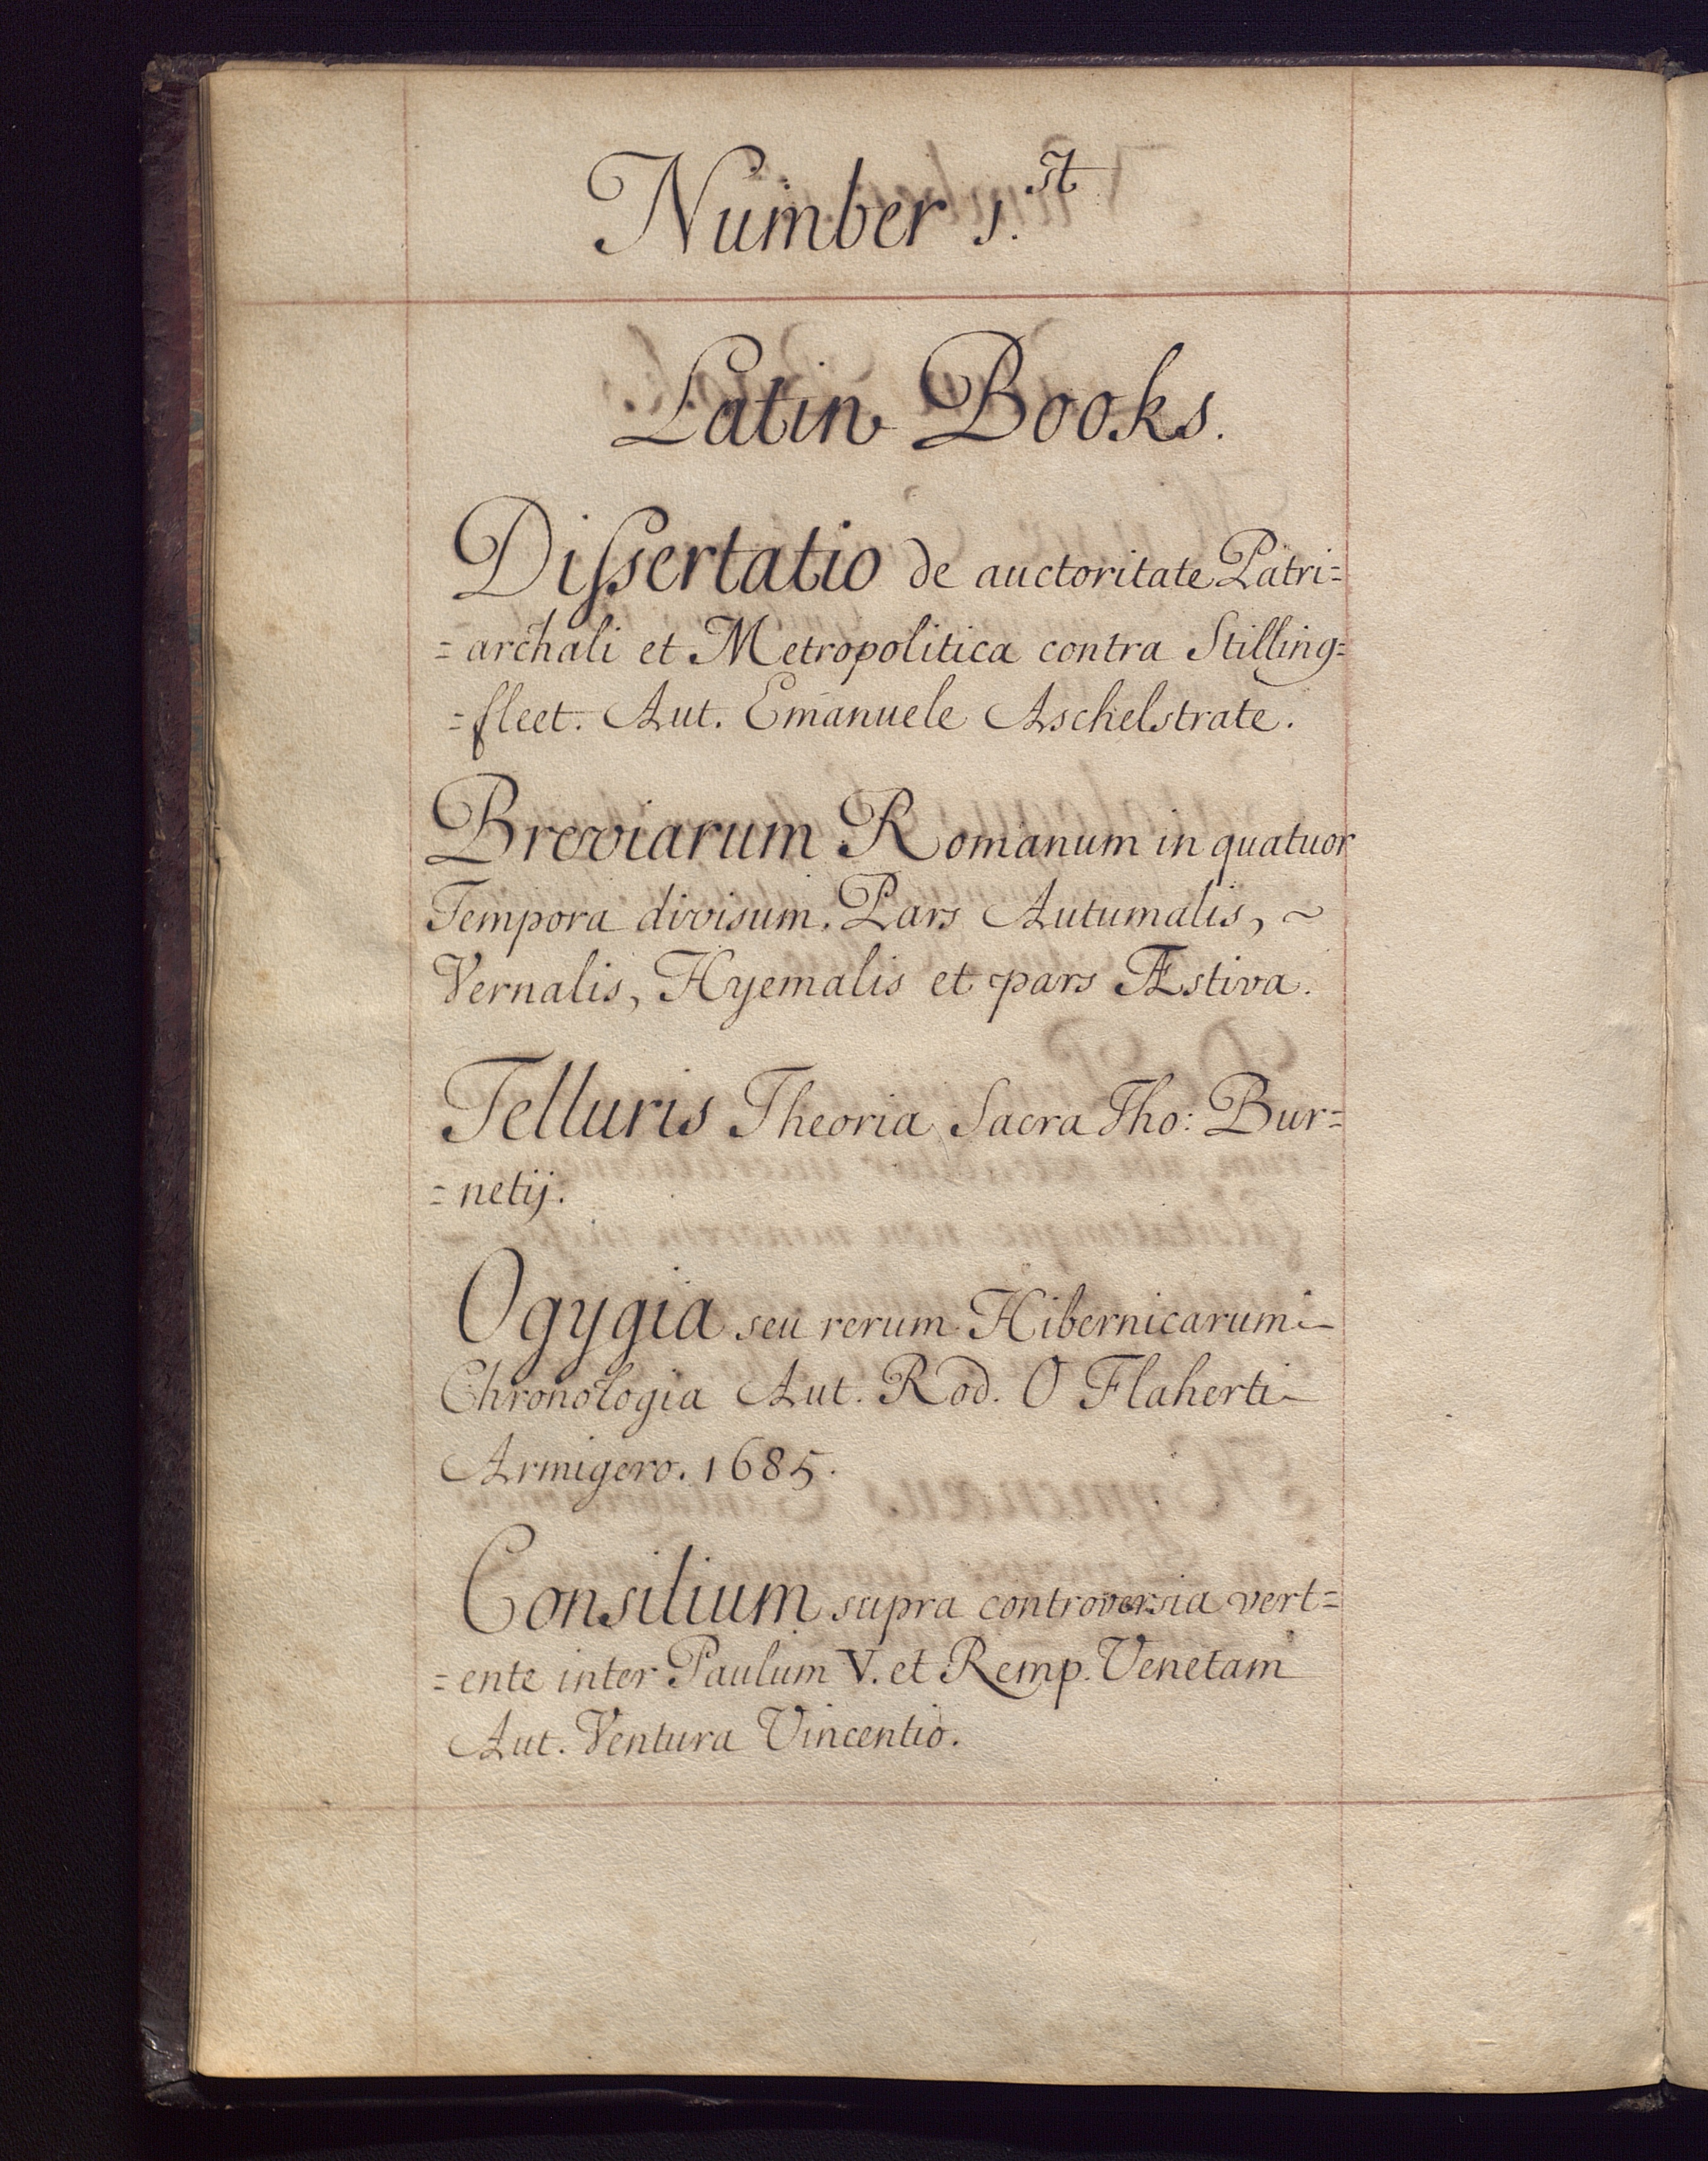 Number 1.st
Latin Books.
Dissertatio de auctoritate Patri=
=archali et Metropolitica contra Stilling=
=fleet. Aut. Emanuele Aschelstrate.
Breviarum Romanum in quatuor
Tempora divisum. Pars Autumalis, ~
Vernalis, Hyemalis et pars Æstiva.
Telluris Theoria Sacra Tho: Bur=
=netij.
Ogygia seu rerum Hibernicarum
Chronologia Aut. Rod. O Flaherti
Armigero. 1685.
Consilium supra controversia vert=
=ente inter Paulum V. et Remp. Venetam
Aut. Ventura Vincentio.